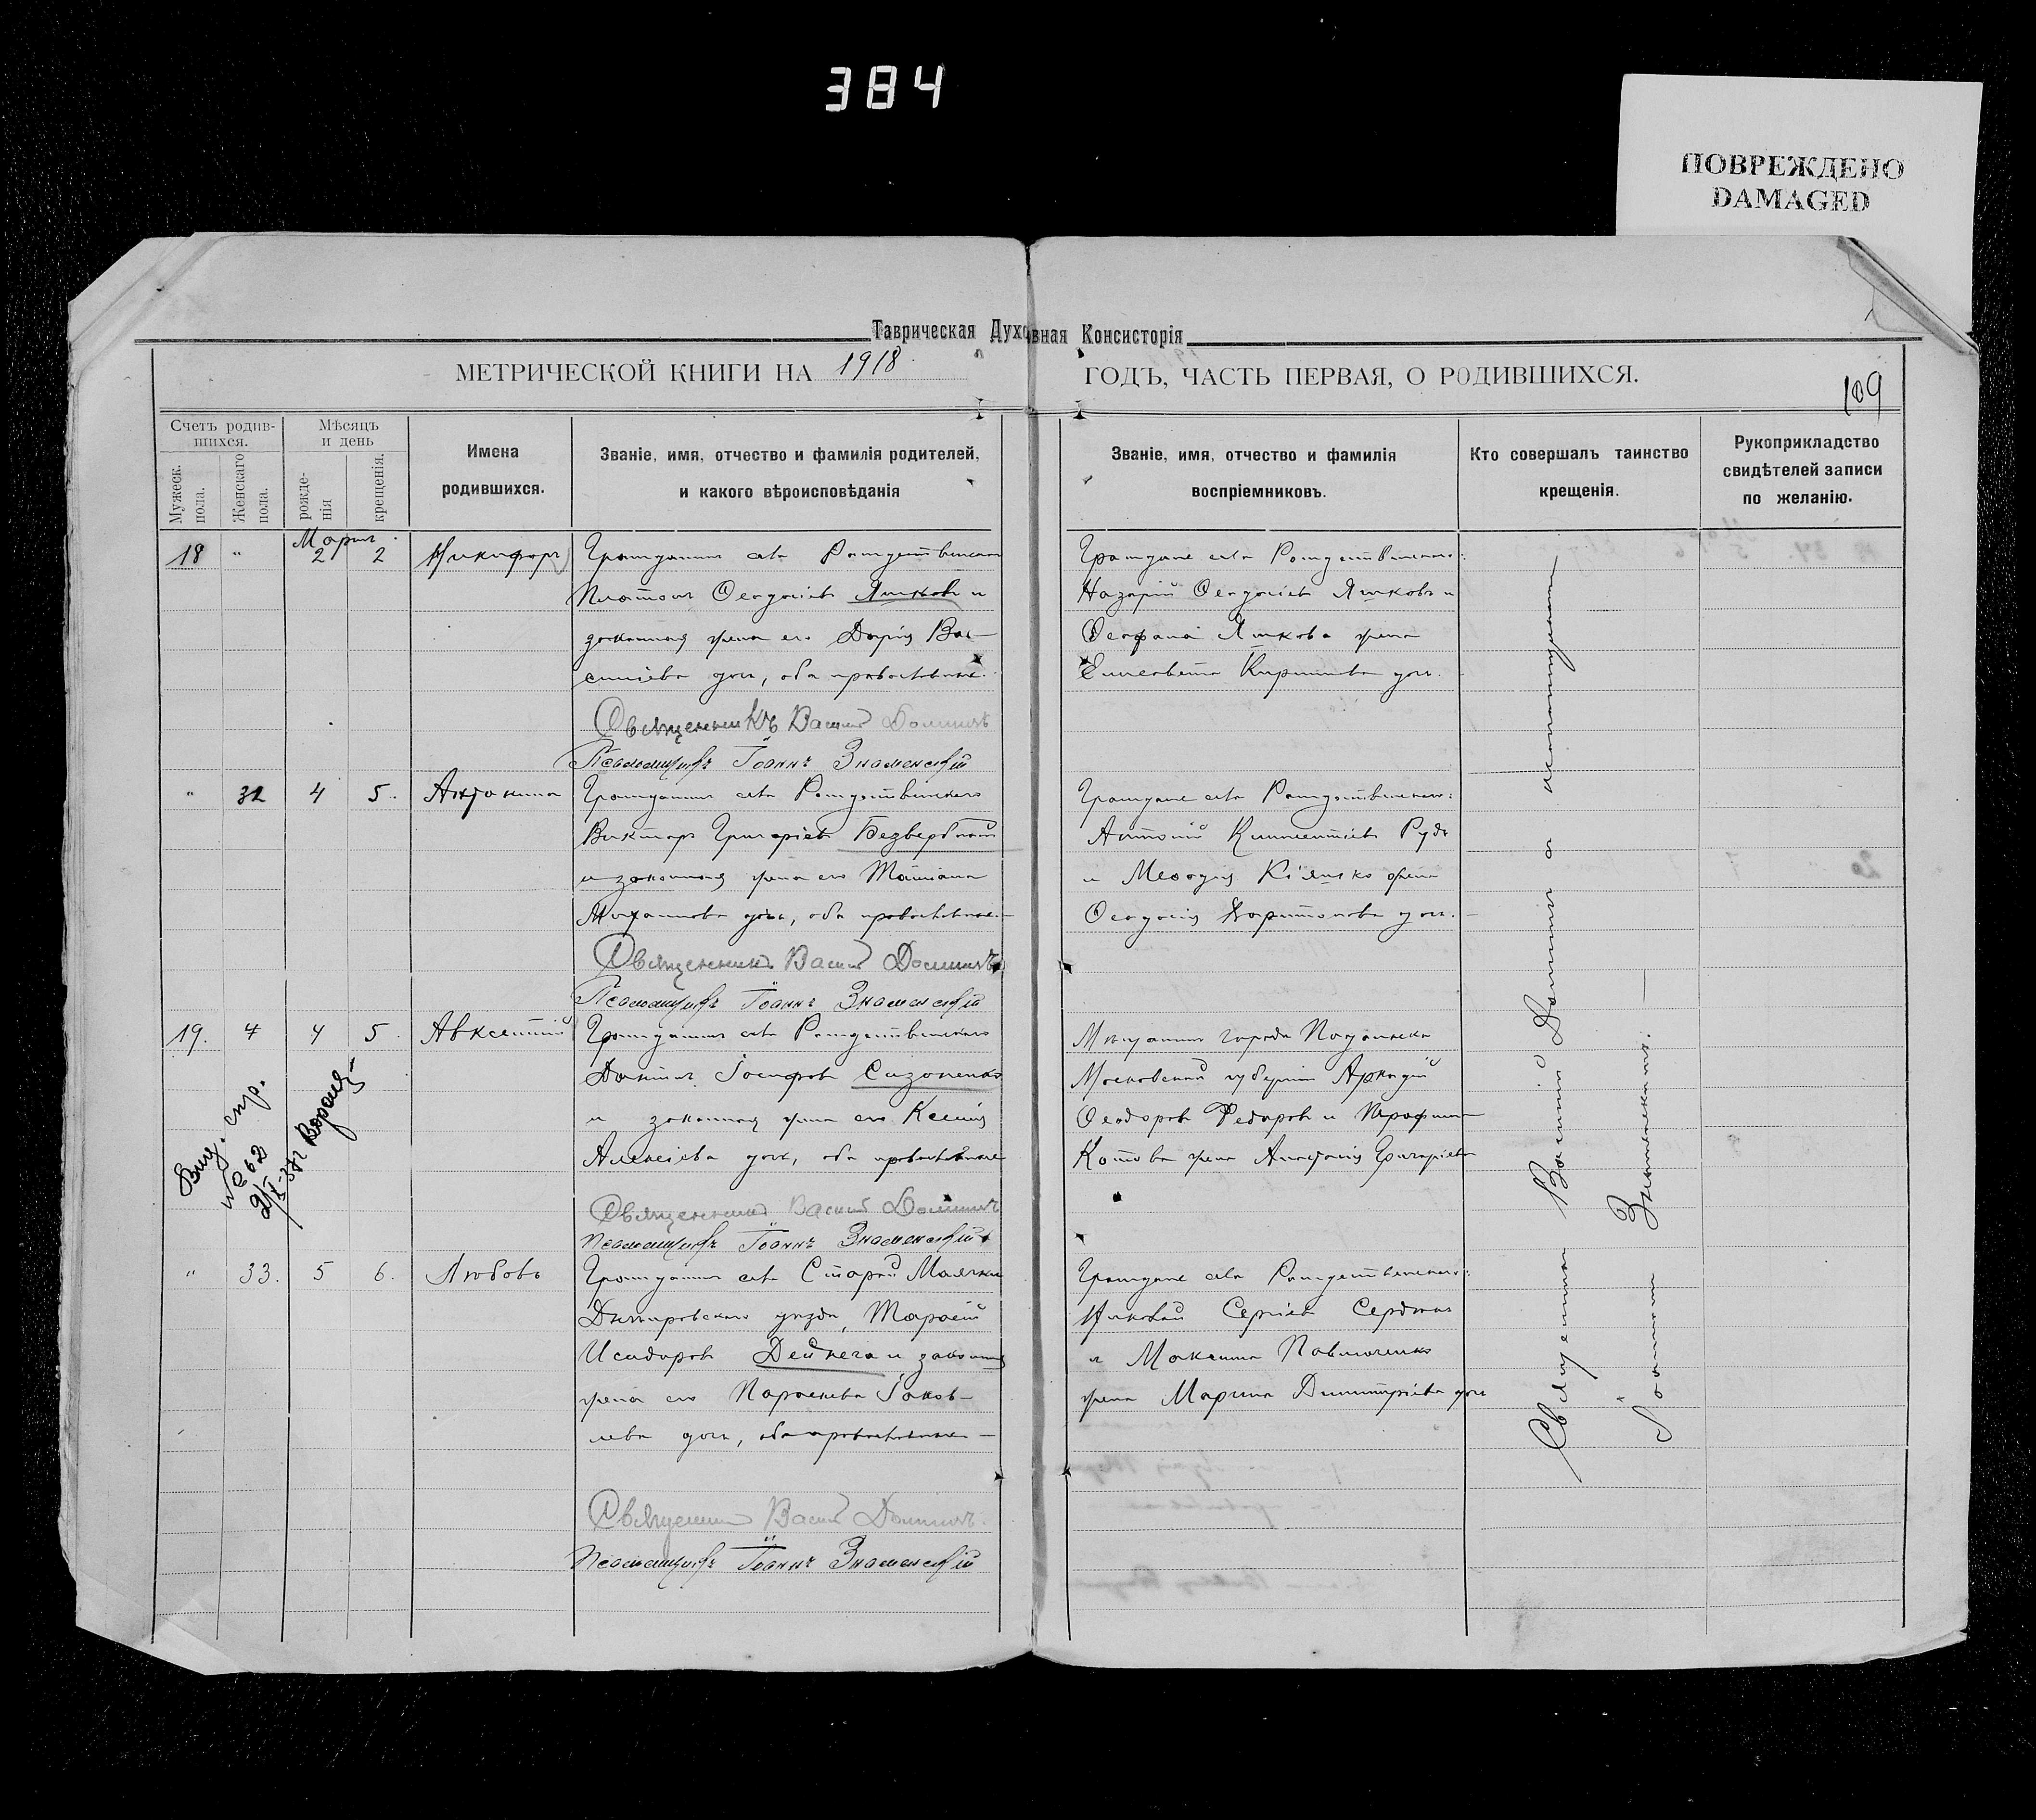 384
ПОВРЕЖДЕНО
DAMAGED
Таврическая Духовная Консисторія
МЕТРИЧЕСКОЙ КНИГИ НА 1918 ГОДЪ, ЧАСТЬ ПЕРВАЯ, О РОДИВШИХСЯ.
109
Счетъ родив-
шихся.
Мужеск.
пола.
Женскаго
пола.
Мѣсяцъ
и день
рожде-
нія
крещенія.
Имена
родившихся.
Званіе, имя, отчество и фамилія родителей,
и какого вѣроисповѣданія
Званіе, имя, отчество и фамилія
воспріемниковъ.
Кто совершалъ таинство
крещенія.
Рукоприкладство
свидѣтелей записи
по желанію.
Мартъ
18 " 2 2 Никифоръ
Гражданинъ села Рождественскаго
Платонъ Ѳеодосіевъ Яшковъ и
законная жена его Дарія Ва-
силіева дочь, оба православные.
Священникъ Василій Долининъ
Псаломщикъ Іоаннъ Знаменскій
Граждане села Рождественскаго:
Назарій Ѳеодосіевъ Яшковъ и
Яшкова жена
Елисавета Кириллова дочь.
" 32 4 5. Антонина
Гражданинъ села Рождественскаго
Викторъ Григоріевъ Безвербный
и законная жена его Татіана
Михаилова дочь, оба православные.
Священникъ Василій Долининъ
Псаломщикъ Іоаннъ Знаменскій
Граждане села Рождественскаго:
Антоній Климентіевъ Рудь
и Меѳодія жена
Ѳеодосія Харитонова дочь.
19. " 4 5. Авксентій
Гражданинъ села Рождественскаго
Даніилъ Іосифовъ Сизоненко
и законная жена его Ксенія
Алексіева дочь, оба православные
Священникъ Василій Долининъ
Псаломщикъ Іоаннъ Знаменскій
Мѣщанинъ города Подольска
Московской губерніи Аркадій
Ѳеодоровъ Федоровъ и Трофима
Котова жена Анастасія Григоріева
Выд. спр.
№ 62
" 33. 5 6. Любовь
Гражданинъ села Старой Маячки
Днѣпровскаго уѣзда, Тарасій
Исидоровъ Дейнега и законная
жена его Параскева Іаков-
лева дочь, оба православные
Священникъ Василій Долининъ.
Псаломщикъ Іоаннъ Знаменскій
Граждане села Рождественскаго:
Николай Сергіевъ Сердюкъ
и Максима Павлюченко
жена Марина Димитріева дочь
Священникъ Василій Долининъ и псаломщикъ
Іоаннъ Знаменскій.